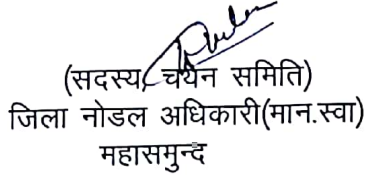 (सदस्य, चयन समिति)
जिला नोडल अधिकारी(मान.स्वा)
महासमुन्द